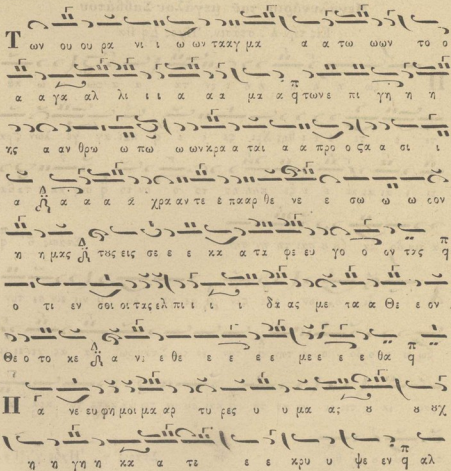 Τ ων ου ου ρα νι ι ω ων τααγ μα α α τω ωων το ο
α α γα αλ λι ι ι α α α μα α q π τωνε πι γη η η
ης α αν θρω ω πω ω ων κρα α ται α α προ ο ζα α σι ι
α α α α ᾰ χρα αν τε ε πααρ θε νε ε σω ω ω σον
η η μας τȣς εις σε ε ε κα α τα φε ευ γο ο ον τας q π
ο τι εν σοι οι τας ελ πι ι ι ι δα ας με τα α Θε ε ον
Θε ο το κε α νε ε θε ε ε ε ε με ε ε ε θα q π
Η α νε ευ φη μοι μα αρ τυ ρες υ υ μα ας ȣ ȣ ȣχ
η η γη η κα α τε ε ε κρυ υ ψε εν q π αλ